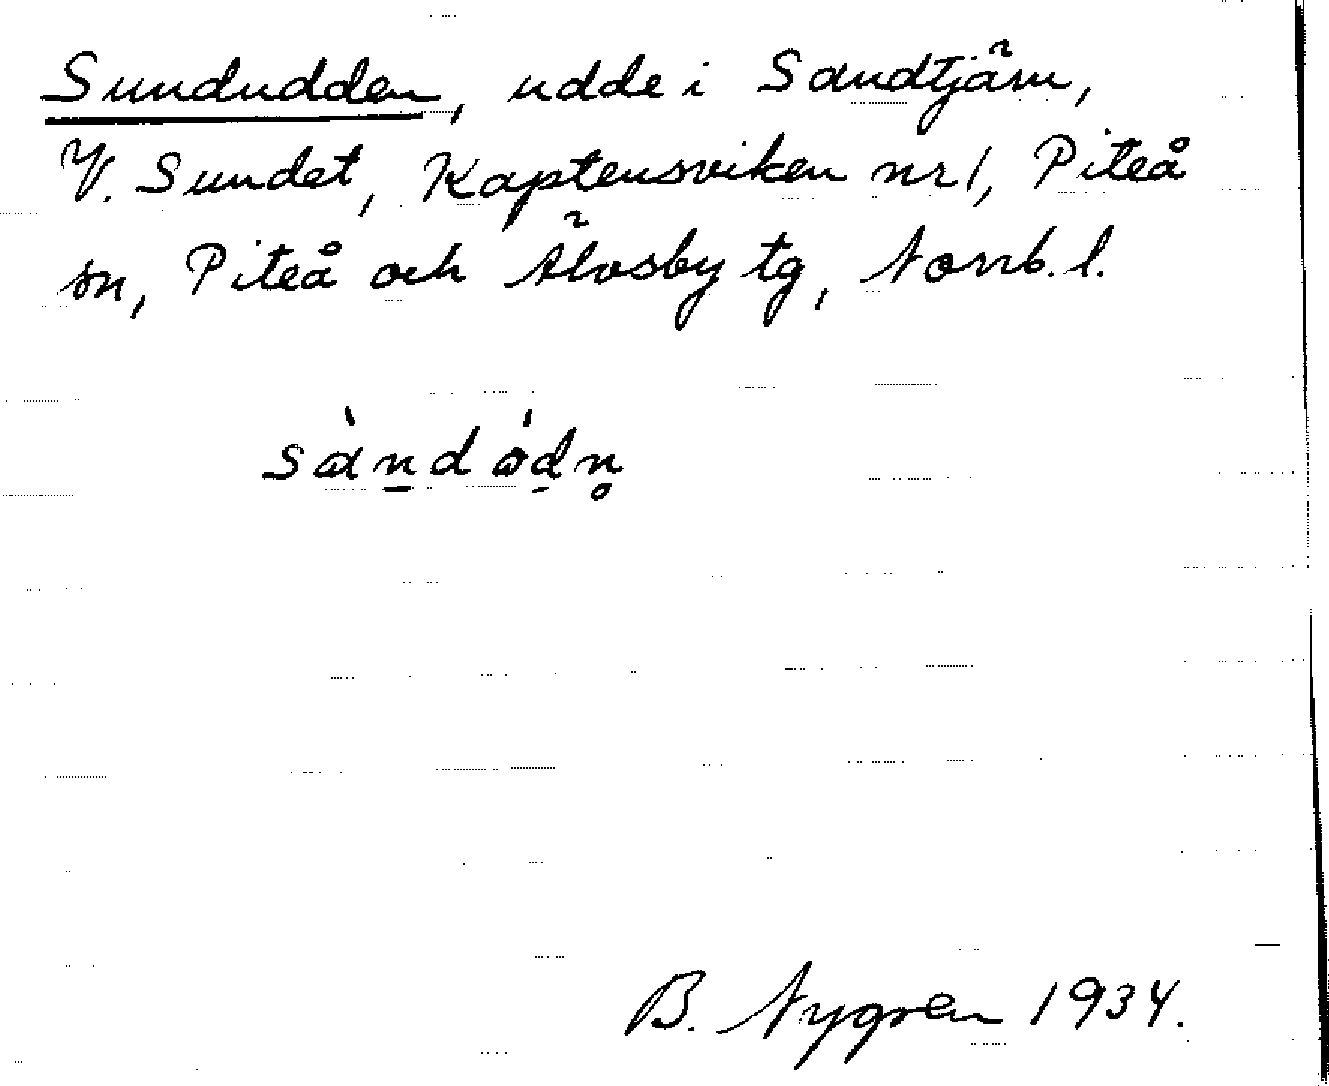 Sundudden, udde i Sandtjärn,
V. Sundet, Kaptensviken nr 1, Piteå
sn, Piteå och Älvsby tg, Norrb. l.
B. Nygren 1934.